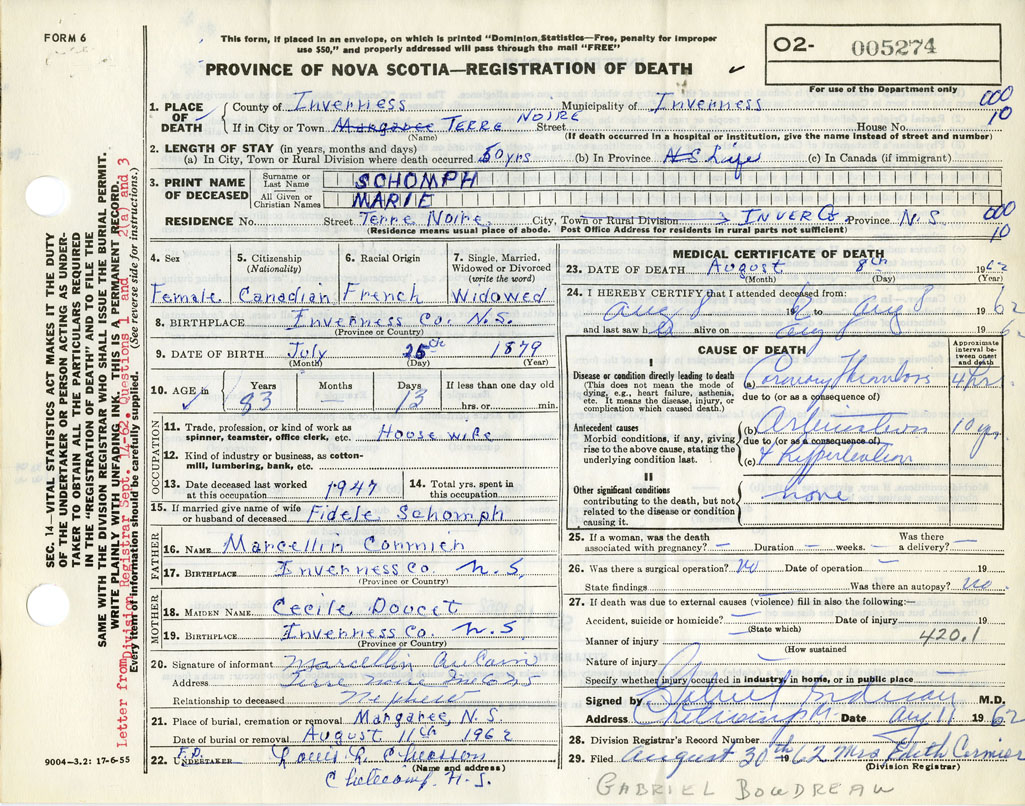 FORM 6
This form, if placed in an envelope, on which is printed "Dominion Statistics—Free, penalty for improper
use $50," and properly addressed will pass through the mail "FREE"
PROVINCE OF NOVA SCOTIA—REGISTRATION OF DEATH
O2- 005274
For use of the Department only
1. PLACE OF DEATH
County of Inverness Municipality of Inverness 000
If in City or Town Margaree TERRE NOIRE Street House No. 10
(Name) (If death occurred in a hospital or institution, give the name instead of street and number)
2. LENGTH OF STAY (in years, months and days)
(a) In City, Town or Rural Division where death occurred 50 yrs (b) In Province NS Life (c) In Canada (if immigrant)
3. PRINT NAME OF DECEASED
Surname or Last Name SCHOMPH
All Given or Christian Names MARIE
RESIDENCE No. Street Terre Noire City, Town or Rural Division INVER Co Province N.S. 000
(Residence means usual place of abode. Post Office Address for residents in rural parts not sufficient) 10
4. Sex
Female
5. Citizenship
(Nationality)
Canadian
6. Racial Origin
French
7. Single, Married,
Widowed or Divorced
(write the word)
Widowed
8. BIRTHPLACE Inverness Co. N.S.
(Province or Country)
9. DATE OF BIRTH July 25th 1879
(Month) (Day) (Year)
10. AGE in Years Months Days If less than one day old
83 13 hrs. or min.
OCCUPATION
11. Trade, profession, or kind of work as
spinner, teamster, office clerk, etc. House wife
12. Kind of industry or business, as cotton-
mill, lumbering, bank, etc.
13. Date deceased last worked
at this occupation 1947
14. Total yrs. spent in
this occupation
15. If married give name of wife
or husband of deceased Fidele Schomph
FATHER
16. NAME Marcellin Cormier
17. BIRTHPLACE Inverness Co. N.S.
(Province or Country)
MOTHER
18. MAIDEN NAME Cecile Doucet
19. BIRTHPLACE Inverness Co. N.S.
(Province or Country)
20. Signature of informant Marcellin AuCoin
Address Terre Noire Inv Co NS
Relationship to deceased Nephew
21. Place of burial, cremation or removal Margaree, N.S.
Date of burial or removal August 11th 1962
22. F.D. UNDERTAKER Louis L. Chiasson
(Name and address)
Chéticamp, N.S.
9004—3.2: 17-6-55
MEDICAL CERTIFICATE OF DEATH
23. DATE OF DEATH August 8th 1962
(Month) (Day)
24. I HEREBY CERTIFY that I attended deceased from:
Aug 8 to Aug 8 62
and last saw h alive on Aug 8 19 62
CAUSE OF DEATH
Approximate
interval be-
tween onset
and death
I
Disease or condition directly leading to death
(This does not mean the mode of
dying, e.g., heart failure, asthenia,
etc. It means the disease, injury, or
complication which caused death.)
(a) Coronary Thrombosis 4 hr
due to (or as a consequence of)
Antecedent causes
Morbid conditions, if any, giving
rise to the above cause, stating the
underlying condition last.
(b) 10 yr
due to (or as a consequence of)
(c) & Hypertention
II
Other significant conditions
contributing to the death, but not
related to the disease or condition
causing it.
none
25. If a woman, was the death
associated with pregnancy? — Duration — weeks. Was there
a delivery? —
26. Was there a surgical operation? No Date of operation — 19
State findings Was there an autopsy? No
27. If death was due to external causes (violence) fill in also the following:—
Accident, suicide or homicide? Date of injury 19
(State which)
Manner of injury 420.1
(How sustained
Nature of injury
Specify whether injury occurred in industry, in home, or in public place
Signed by Gabriel Boudreau M.D.
Address Date Aug 11 1962
28. Division Registrar's Record Number
29. Filed August 30th 1962 Mrs Edith Cormier
(Division Registrar)
GABRIEL BOUDREAU
SEC. 14—VITAL STATISTICS ACT MAKES IT THE DUTY
OF THE UNDERTAKER OR PERSON ACTING AS UNDER-
TAKER TO OBTAIN ALL THE PARTICULARS REQUIRED
IN THE "REGISTRATION OF DEATH" AND TO FILE THE
SAME WITH THE DIVISION REGISTRAR WHO SHALL ISSUE THE BURIAL PERMIT.
WRITE PLAINLY WITH UNFADING INK. THIS IS A PERMANENT RECORD.
Every item of information should be carefully supplied. (See reverse side for instructions.)
Letter from Division Registrar Sept. 14-62. Questions 1 and 2(a) and 3